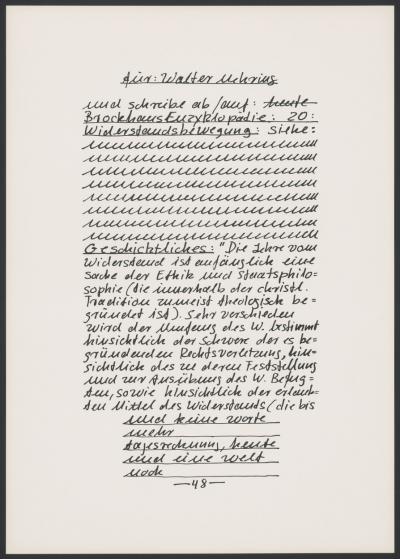 für: Walter Mehring
und schreibe ab/auf: heute
Brockhaus Enzyklopädie: 20:
Widerstandsbewegung: siehe:
Geschichtliches: "Die Lehre vom
Widerstand ist anfänglich eine
Sache der Ethik und Staatsphilo=
sophie (die innerhalb der christl.
Tradition zumeist theologisch be=
gründet ist). Sehr verschieden
wird der Umfang des W. bestimmt
hinsichtlich der Schwere der es be=
gründenden Rechtsverletzung, hin=
sichtlich des zu deren Feststellung
und zur Ausübung des W. Befug=
ten, sowie hinsichtlich der erlaub=
ten Mittel des Widerstands (die bis
und keine worte
mehr
tagesrechnung, heute
und eine welt
noch
—48—